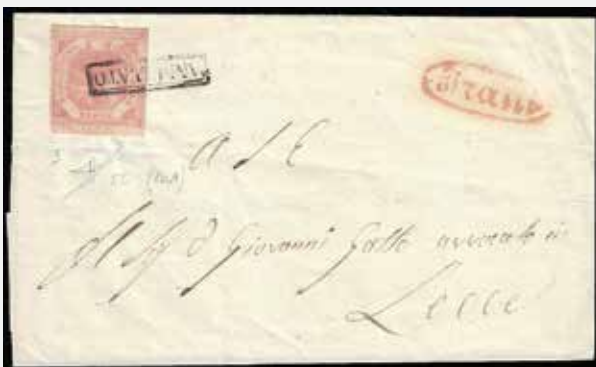 ANNULLATO
Trani
A S E
Al Sig D Giovanni Gallo avvocato in
Lecce